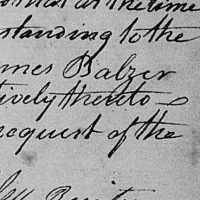 at the time
standing to the
mes Balzer
tively thereto
request of the